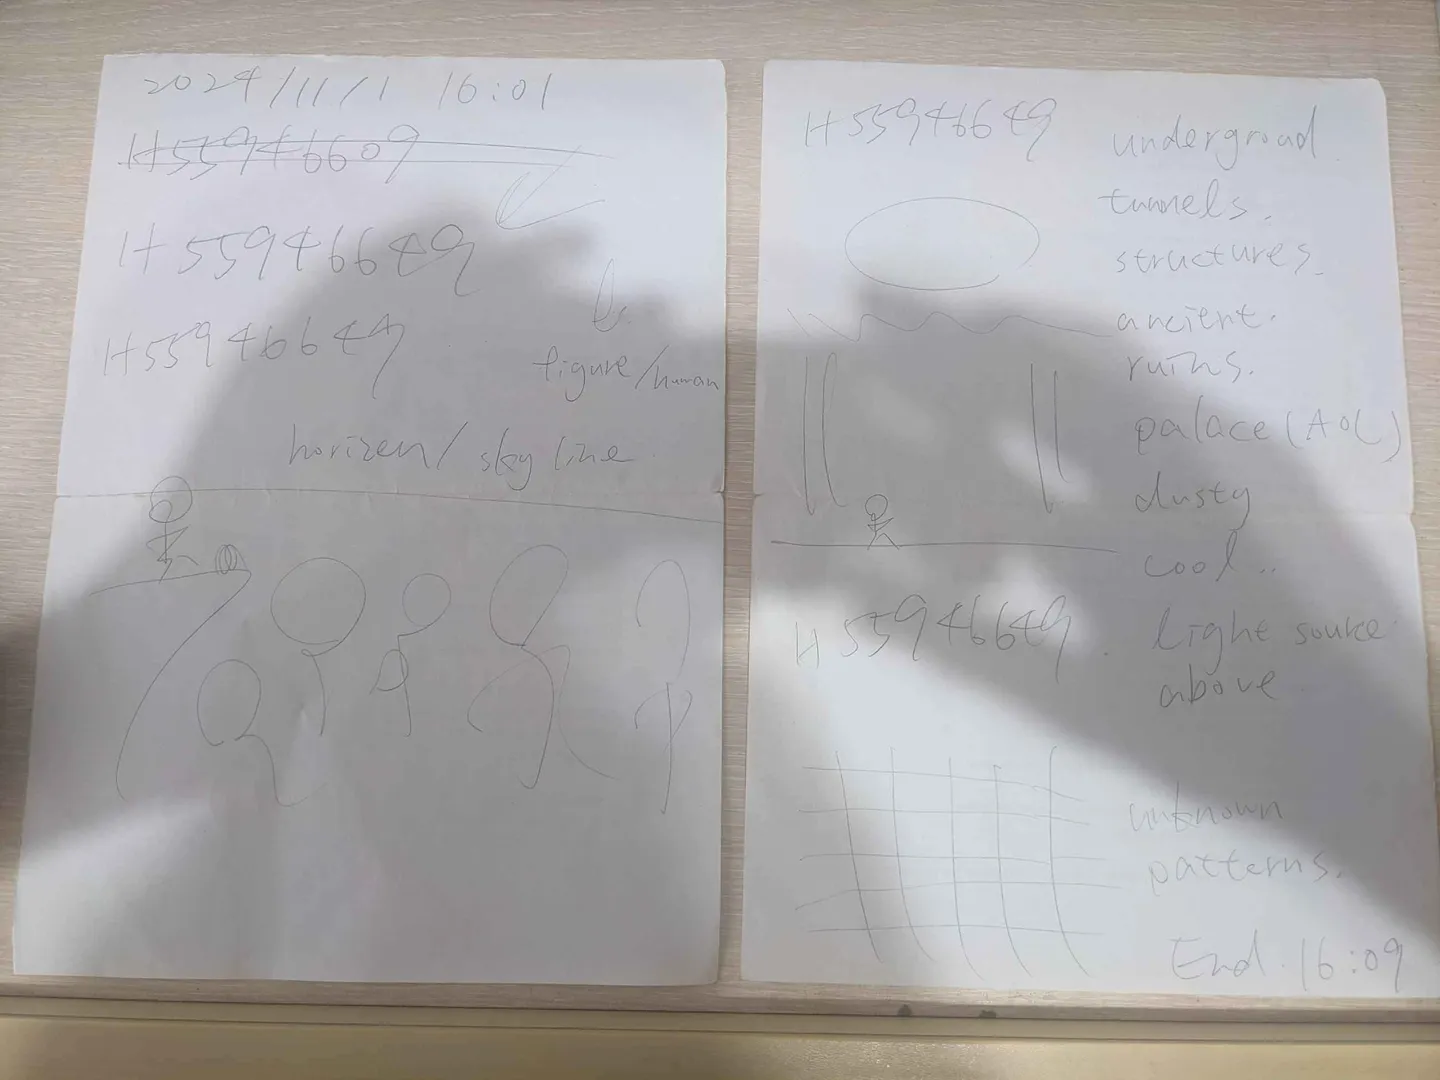 2024/11/1 16:01
H55946609
H55946649
H55946649
figure/human
horizen/ sky line
H55946649
undergroud
tunnels.
structures.
ancient.
ruins.
palace (AOL)
dusty
cool..
H55946649.
light source
above
unknown
patterns.
End. 16:09